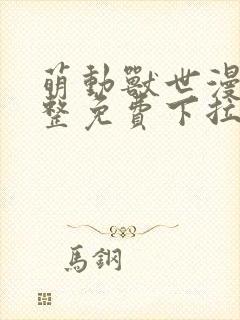 萌動獸世漫
整免費下拉
馬鋼